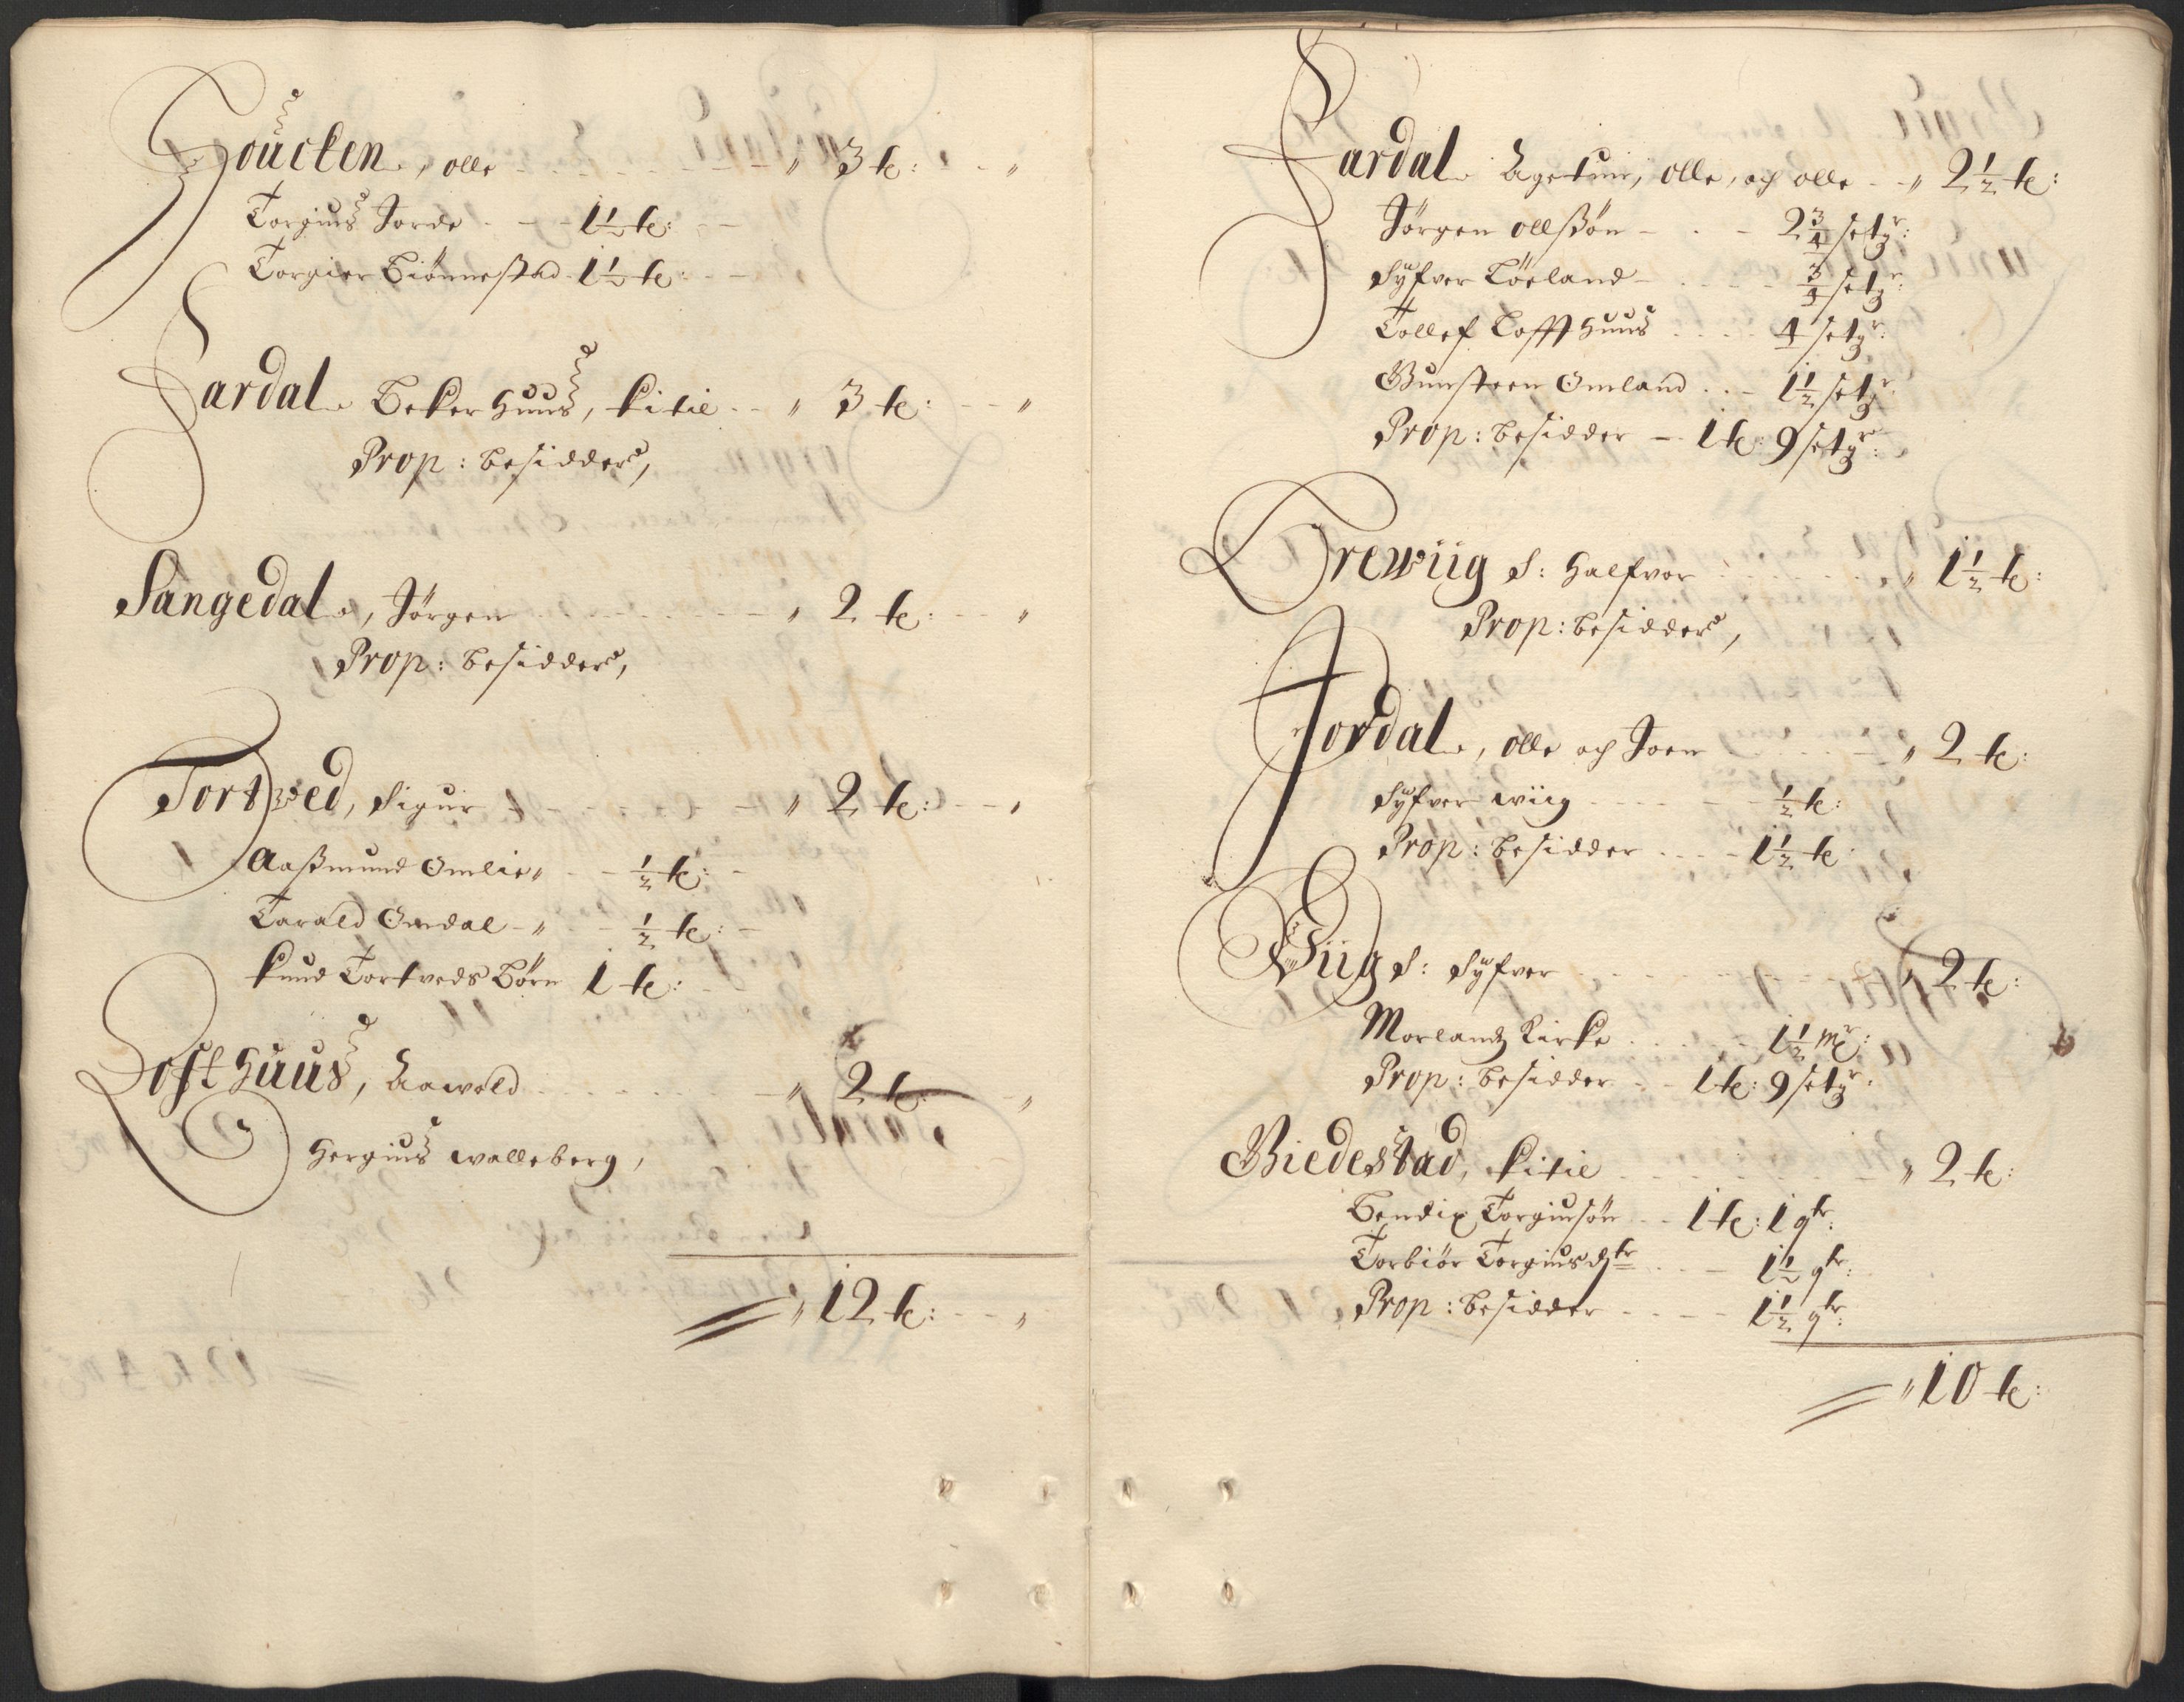 Goucken, olle - - - " 3 k: - - "
Torgius Jorde - - 1½ k: - -
Torgier Biönnestad - 1½ k: - -
Jardal Bekerhuus, kitil - - " 3 k: - - "
Prop: besidder,
Sangedal, Jörgen - - - " 2 k: - - "
Prop: besidder,
Tortved, Sigur - - - " 2 k: - - "
Aaßmund Omlie " - - ½ k: -
Tarald Omdal - " - - ½ k: -
knud Tortveds Börn 1 k: - -
Lofthuus, Aawold - - - " 2 k: - - "
Hergius walleberg,
" 12 k: - - "
Jardal olle, og olle - - " 2½ k:
Jörgen ollßön - - - 2¾ setgr:
Syfver Löeland - - - ¾ setgr:
Tollef Loffthuus - - - 4 setgr:
Gunsteen Omland - - - 1½ setgr:
Prop: besidder - 1 k: 9 setgr:
Drewiig S: Halfvor - - - " 1½ k:
Prop: besidder,
Jordal, olle og Joen - - - " 2 k:
Syfver wiig - - - ½ k:
Prop: besidder - - - 1½ k:
Wiig S: Syfver - - - " 2 k:
Morlandz Kirke - - - 1½ mr:
Prop: besidder - - 1 k: 9 setgr:
Biedestad, kitil - - - " 2 k:
Bendix Torgiusön - - 1 k: 1 gr:
Torbiör Torgiusdtr - - - 1½ gr:
Prop: besidder - - - 1½ gr:
" 10 k: